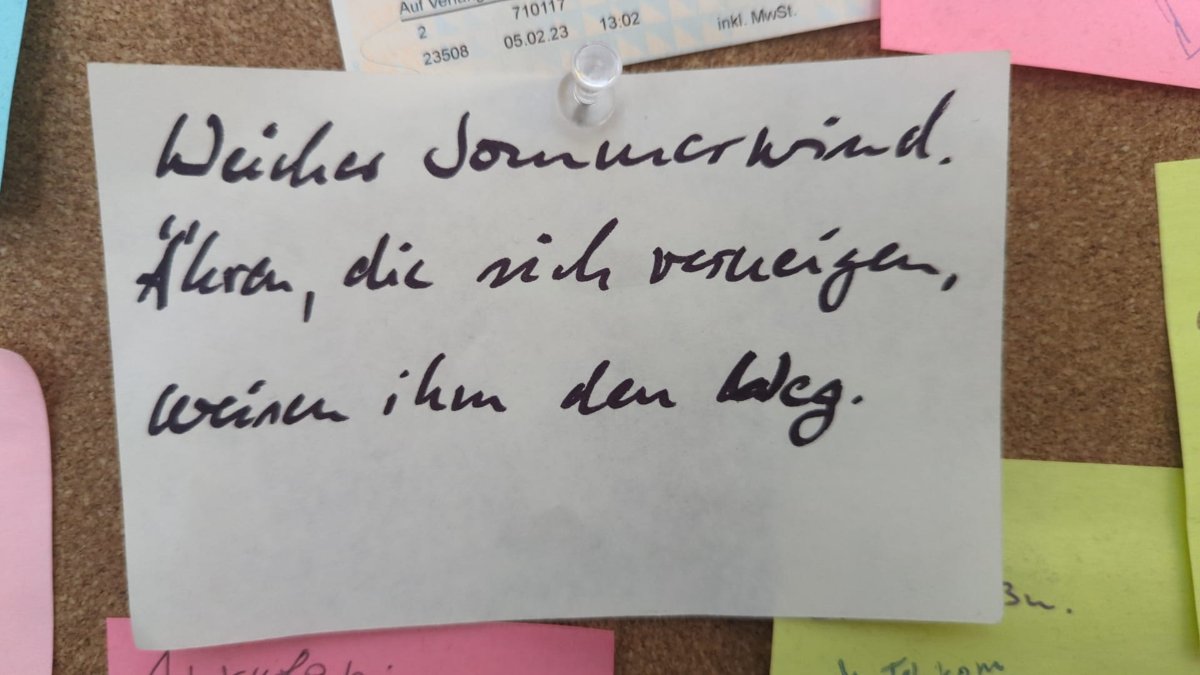 Auf Verlang
2 710117
23508 05.02.23 13:02 inkl. MwSt.
Weicher Sommerwind.
Ähren, die sich verneigen,
weisen ihm den Weg.